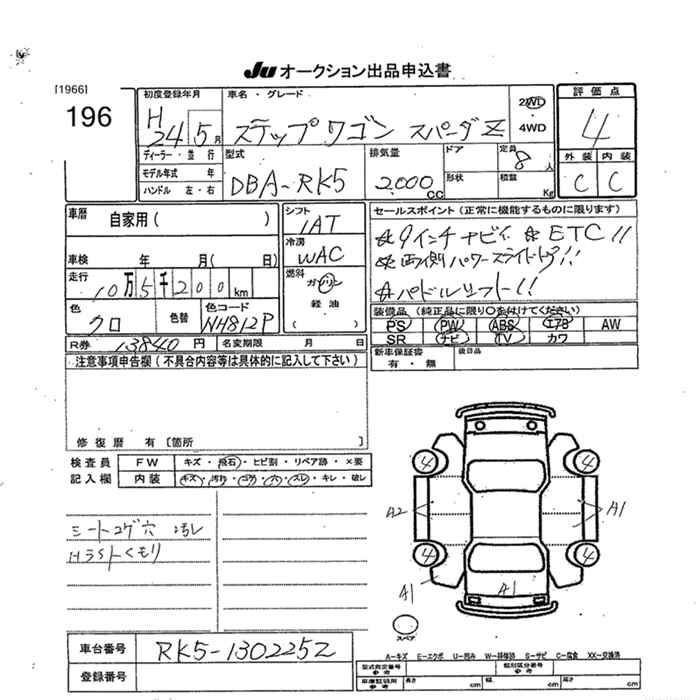 JU オークション出品申込書
[1966]
196
初度登録年月
H 24 5月
車名・グレード
ステップワゴン スパーダZ
2WD
4WD
評価点
4
外装 内装
C C
ディーラー・並行
モデル年式 年
ハンドル 左・右
型式
DBA-RK5
排気量
2,000 CC
ドア
形状
定員
8人
積載
Kg
車歴
自家用( )
車検 年 月( 日)
走行
10万5千200km
色
クロ
色替
色コード
NH812P
シフト
IAT
冷房
WAC
燃料
ガソリン
軽油
( )
セールスポイント(正常に機能するものに限ります)
☆9インチナビィ ☆ETC!!
☆両側パワースライドドア!!
☆パドルシフト!!
装備品(純正品に限り○を付けてください)
PS PW ABS エアB AW
SR ナビ TV カワ
R券 13840円
名変期限 月 日
新車保証書
有・無
後日品
注意事項申告欄(不具合内容等は具体的に記入して下さい)
修復歴 有[箇所 ]
検査員
記入欄
FW キズ・飛石・ヒビ割・リペア跡・×要
内装 キズ・汚れ・コゲ・穴・スレ・キレ・破レ
シートコゲ穴 汚レ
Hライトくモリ
A2
A1
A1
A1
4
4
4
4
スペア
車台番号
RK5-1302252
登録番号
A-キズ E-エクボ U-凹み W-補修跡 S-サビ C-腐食 XX-交換済
型式指定番号
参考
類別区分番号
参考
車庫証明用
参考
長さ cm
幅 cm
高さ cm